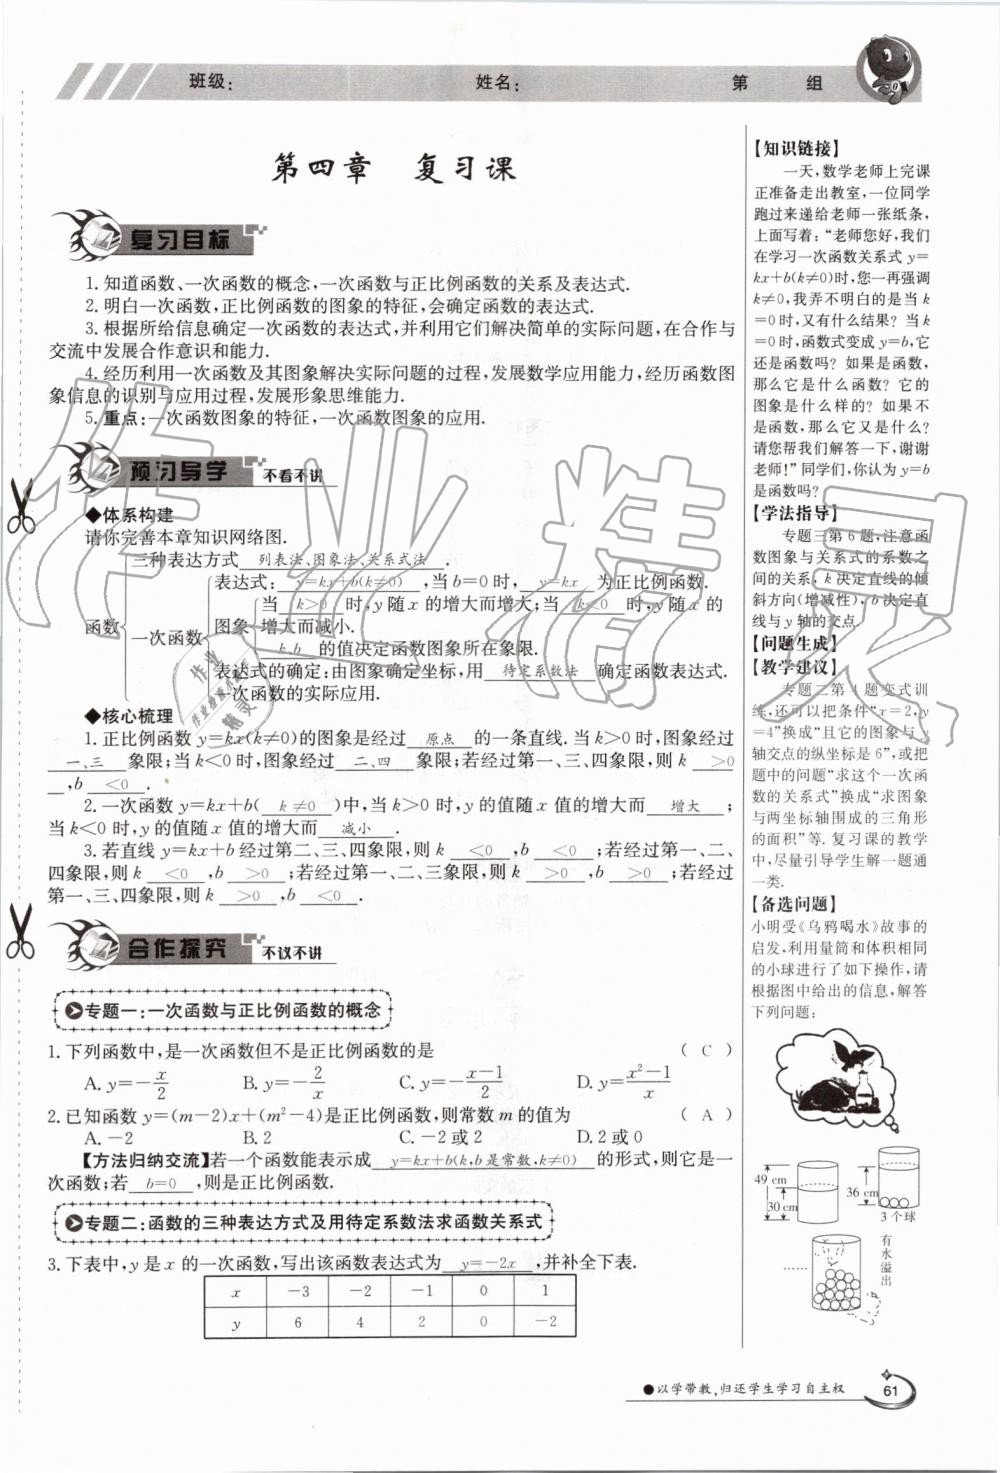 班级:
姓名:
第 组
第四章 复习课
复习目标
1. 知道函数、一次函数的概念,一次函数与正比例函数的关系及表达式.
2. 明白一次函数,正比例函数的图象的特征,会确定函数的表达式.
3. 根据所给信息确定一次函数的表达式,并利用它们解决简单的实际问题,在合作与
交流中发展合作意识和能力.
4. 经历利用一次函数及其图象解决实际问题的过程,发展数学应用能力,经历函数图
象信息的识别与应用过程,发展形象思维能力.
5. 重点:一次函数图象的特征,一次函数图象的应用.
预习导学 不看不讲
◆体系构建
请你完善本章知识网络图.
三种表达方式 列表法、图象法、关系式法 .
表达式: y=kx+b(k≠0) ,当b=0时, y=kx 为正比例函数.
当 k>0 时,y随x的增大而增大;当 k<0 时,y随x的
函数 一次函数 图象 增大而减小.
k,b 的值决定函数图象所在象限.
表达式的确定:由图象确定坐标,用 待定系数法 确定函数表达式.
一次函数的实际应用.
◆核心梳理
1. 正比例函数y=kx(k≠0)的图象是经过 原点 的一条直线.当k>0时,图象经过
一、三 象限;当k<0时,图象经过 二、四 象限;若经过第一、三、四象限,则k >0
,b <0 .
2. 一次函数y=kx+b( k≠0 )中,当k>0时,y的值随x值的增大而 增大 ;
当k<0时,y的值随x值的增大而 减小 .
3. 若直线y=kx+b经过第二、三、四象限,则k <0 ,b <0 ;若经过第一、二、
四象限,则k <0 ,b >0 ;若经过第一、二、三象限,则k >0 ,b >0 ;若经过
第一、三、四象限,则k >0 ,b <0 .
合作探究 不议不讲
专题一:一次函数与正比例函数的概念
1. 下列函数中,是一次函数但不是正比例函数的是 ( C )
A. y=-x/2 B. y=-2/x C. y=-(x-1)/2 D. y=(x²-1)/x
2. 已知函数y=(m-2)x+(m²-4)是正比例函数,则常数m的值为 ( A )
A. -2 B. 2 C. -2或2 D. 2或0
【方法归纳交流】若一个函数能表示成 y=kx+b(k,b是常数,k≠0) 的形式,则它是一
次函数;若 b=0 ,则是正比例函数.
专题二:函数的三种表达方式及用待定系数法求函数关系式
3. 下表中,y是x的一次函数,写出该函数表达式为 y=-2x ,并补全下表.
x -3 -2 -1 0 1
y 6 4 2 0 -2
【知识链接】
一天,数学老师上完课
正准备走出教室,一位同学
跑过来递给老师一张纸条,
上面写着:“老师您好,我们
在学习一次函数关系式y=
kx+b(k≠0)时,您一再强调
k≠0,我弄不明白的是当k
=0时,又有什么结果?当k
=0时,函数式变成y=b,它
还是函数吗?如果是函数,
那么它是什么函数?它的
图象是什么样的?如果不
是函数,那么它又是什么?
请您帮我们解答一下,谢谢
老师!”同学们,你认为y=b
是函数吗?
【学法指导】
专题三第6题,注意函
数图象与关系式的系数之
间的关系,k决定直线的倾
斜方向(增减性),b决定直
线与y轴的交点.
【问题生成】
【教学建议】
专题二第4题变式训
练,还可以把条件“x=2,y
=4”换成“且它的图象与y
轴交点的纵坐标是6”,或把
题中的问题“求这个一次函
数的关系式”换成“求图象
与两坐标轴围成的三角形
的面积”等.复习课的教学
中,尽量引导学生解一题通
一类.
【备选问题】
小明受《乌鸦喝水》故事的
启发,利用量筒和体积相同
的小球进行了如下操作,请
根据图中给出的信息,解答
下列问题:
49 cm
30 cm
36 cm
3个球
有水溢出
……
●以学带教,归还学生学习自主权
61
作业精灵